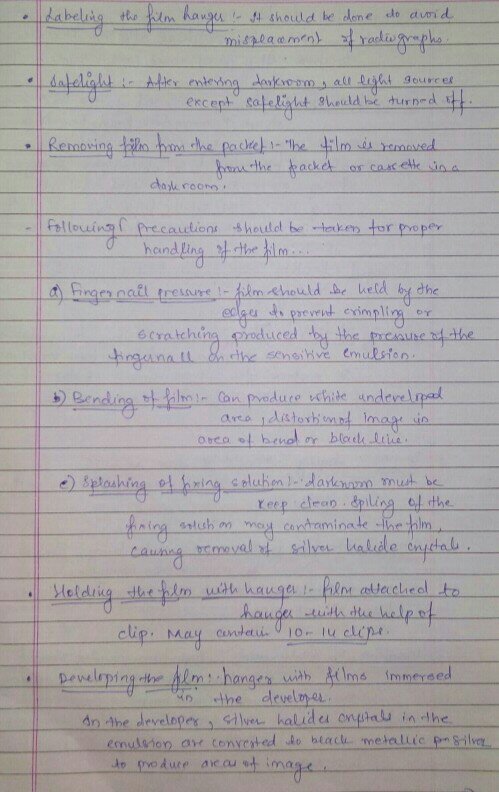 • Labeling the film hanger :- It should be done to avoid
misplacement of radiographs.
• Safelight :- After entering darkroom, all light sources
except safelight should be turned off.
• Removing film from the packet :- The film is removed
from the packet or cassette in a
darkroom.
- Following precautions should be taken for proper
handling of the film...
a) Fingernail pressure :- film should be held by the
edges to prevent crimpling or
scratching produced by the pressure of the
fingernail on the sensitive emulsion.
b) Bending of film :- Can produce white undeveloped
area, distortion of image in
area of bend or black line.
c) Splashing of fixing solution :- darkroom must be
keep clean. Spiling of the
fixing solution may contaminate the film,
causing removal of silver halide crystals.
• Holding the film with hanger :- film attached to
hanger with the help of
clip. May contain 10-14 clips.
• Developing the film :- hanger with films immersed
in the developer.
In the developer, silver halides crystals in the
emulsion are converted to black metallic silver
to produce areas of image.